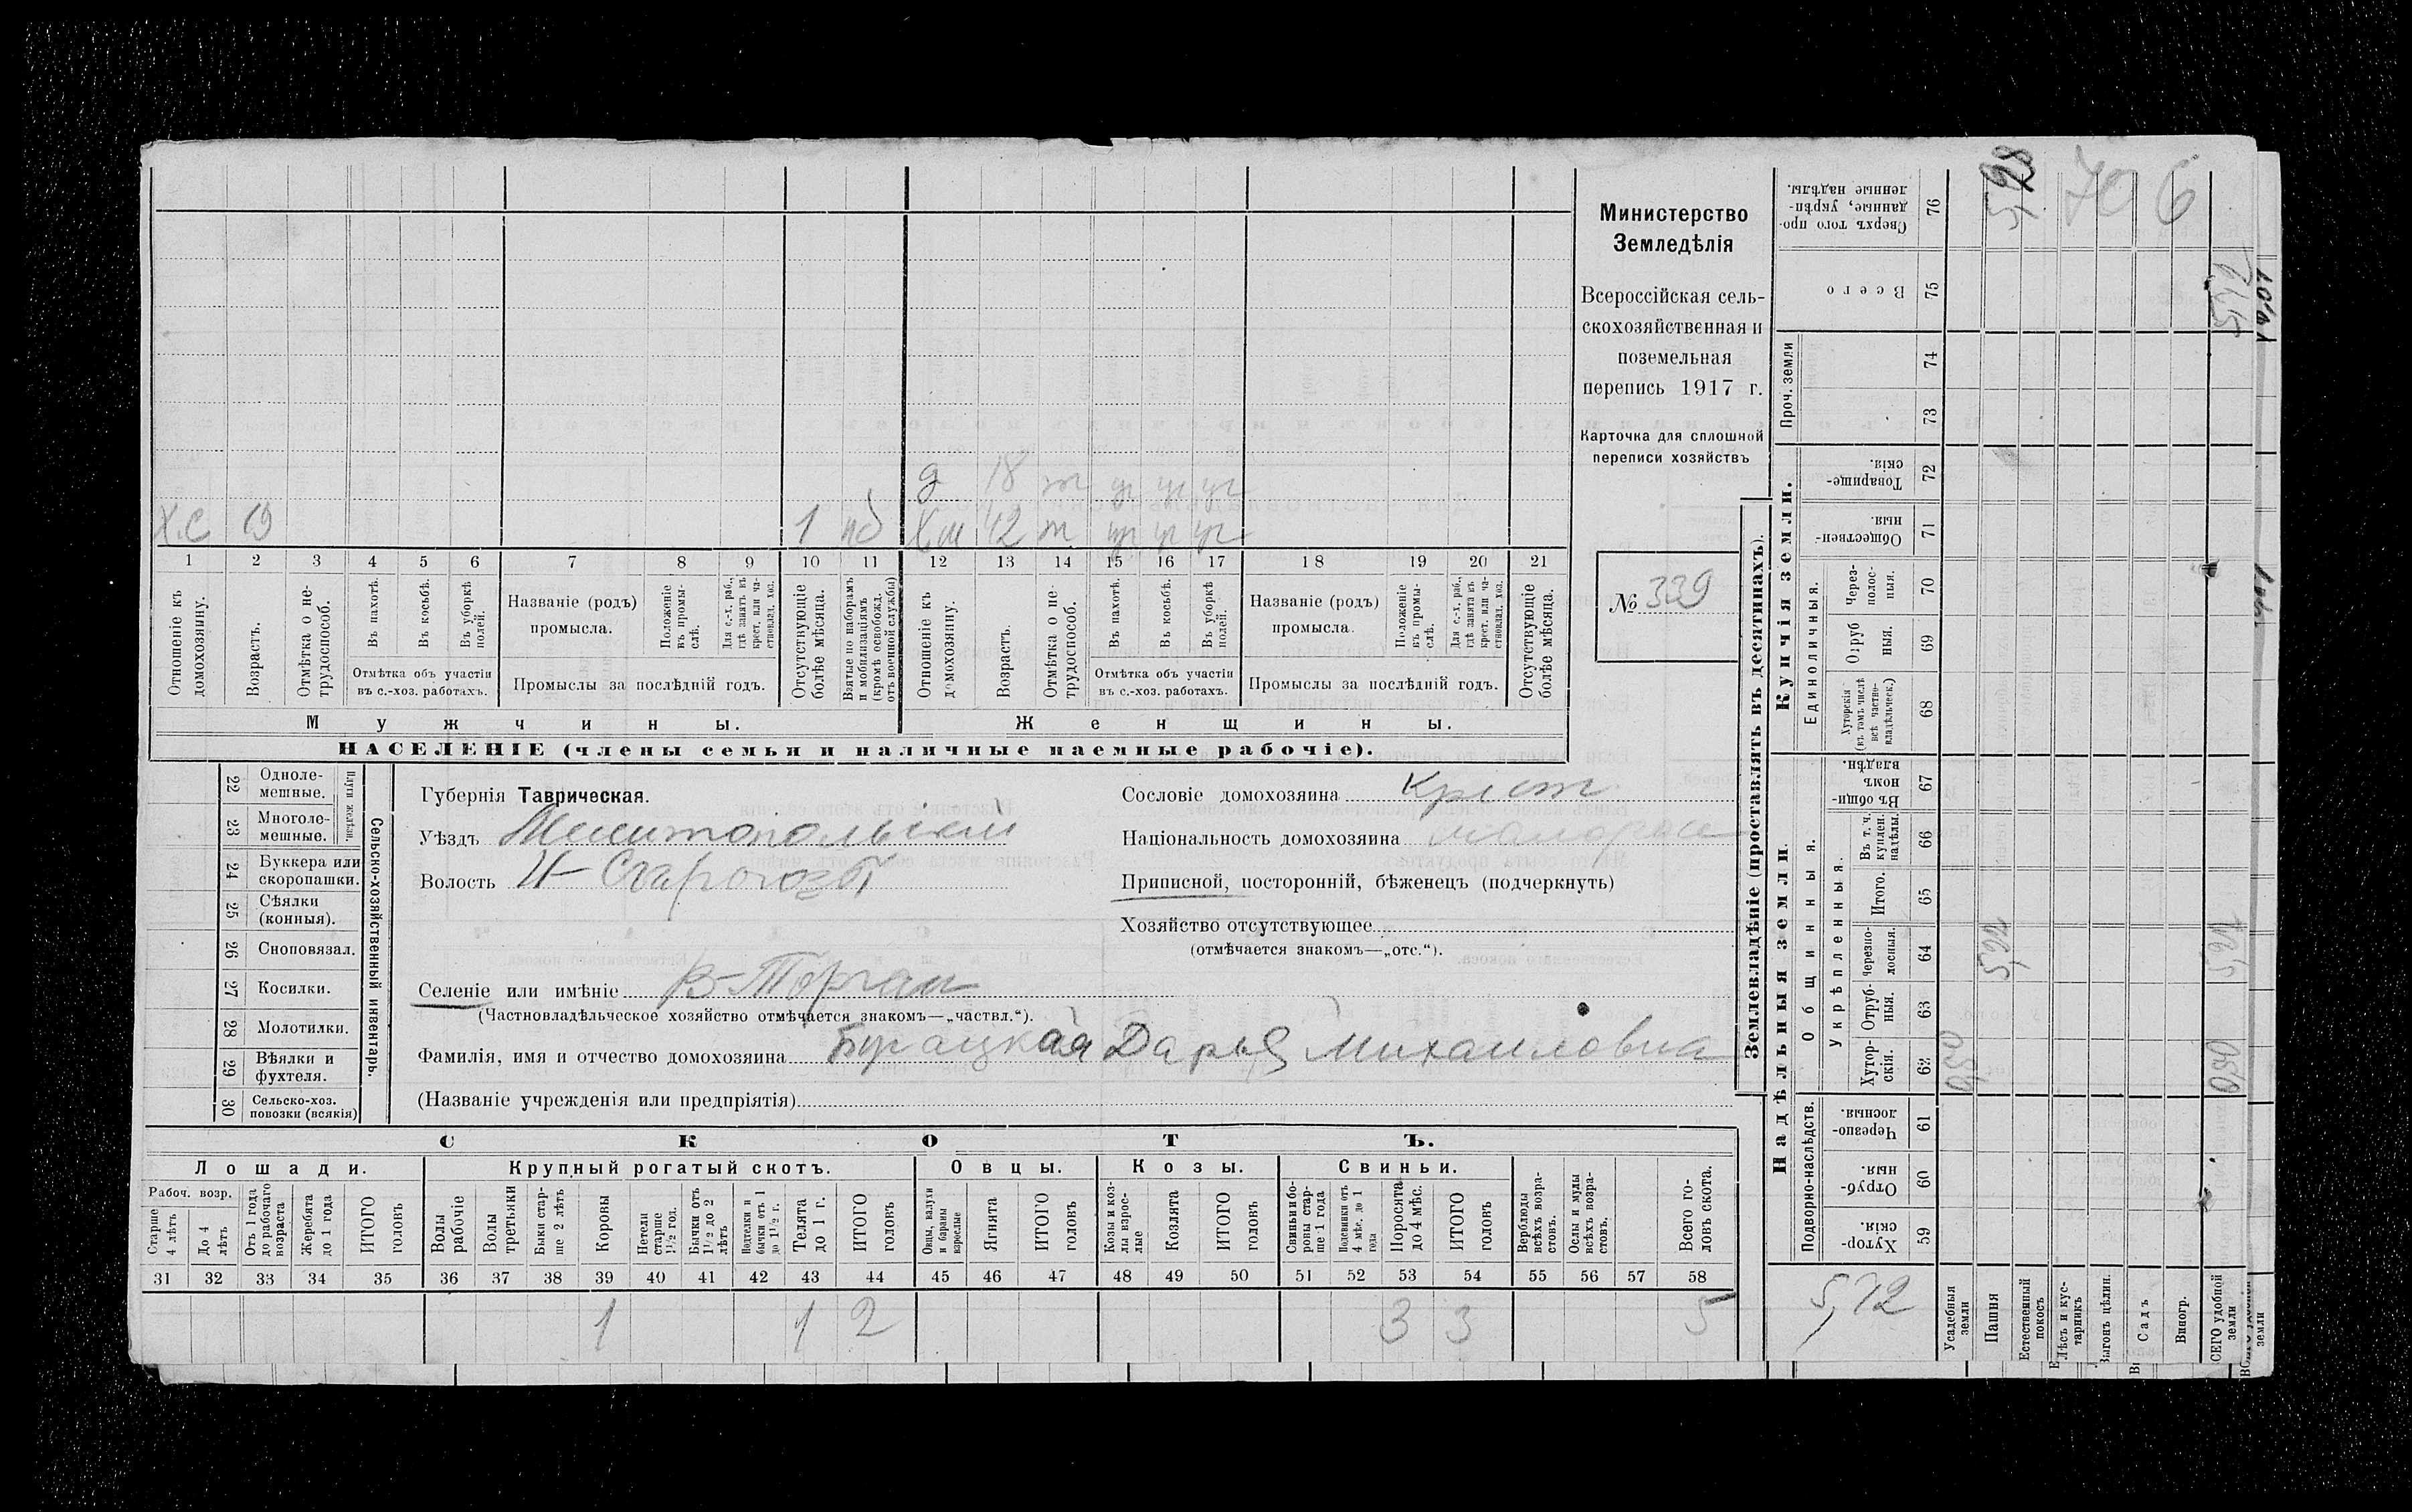 Министерство
Земледѣлія
Всероссійская сель-
скохозяйственная и
поземельная
перепись 1917 г.
Карточка для сплошной
переписи хозяйствъ
№ 339
д 18
Х.С 19 1 Хш 42
1 2 3 4 5 6 7 8 9 10 11 12 13 14 15 16 17 18 19 20 21
Отношеніе къ домохозяину.
Возрастъ.
Отмѣтка о не-трудоспособ.
Въ пахотѣ.
Въ косьбѣ.
Въ уборкѣ полей.
Отмѣтка объ участіи
въ с.-хоз. работахъ.
Названіе (родъ)
промысла.
Положеніе въ промы-слѣ.
Для с.-х. раб., гдѣ занятъ въ крест. или ча-стновлад. хоз.
Промыслы за послѣдній годъ.
Отсутствующіе болѣе мѣсяца.
Взятые по наборамъ и мобилизаціямъ (кромѣ освобожд. отъ военной службы)
Отношеніе къ домохозяину.
Возрастъ.
Отмѣтка о не-трудоспособ.
Въ пахотѣ.
Въ косьбѣ.
Въ уборкѣ полей.
Отмѣтка объ участіи
въ с.-хоз. работахъ.
Названіе (родъ)
промысла.
Положеніе въ промы-слѣ.
Для с.-х. раб., гдѣ занята въ крест. или ча-стновлад. хоз.
Промыслы за послѣдній годъ.
Отсутствующіе болѣе мѣсяца.
Мужчины.
Женщины.
НАСЕЛЕНІЕ (члены семьи и наличные наемные рабочіе).
22 Одноле-мешные.
23 Многоле-мешные.
Плуги желѣзн.
24 Буккера или скоропашки.
25 Сѣялки (конныя).
26 Сноповязал.
27 Косилки.
28 Молотилки.
29 Вѣялки и фухтеля.
30 Сельско-хоз. повозки (всякія)
Сельско-хозяйственный инвентарь.
Губернія Таврическая.
Уѣздъ Мелитопольскій
Волость
Селеніе или имѣніе В-Торгаи
(Частновладѣльческое хозяйство отмѣчается знакомъ—„частвл.“).
Фамилія, имя и отчество домохозяина Бурацкая Дарья Михаиловна
(Названіе учрежденія или предпріятія)
Сословіе домохозяина Крест
Національность домохозяина малорос
Приписной, посторонній, бѣженецъ (подчеркнуть)
Хозяйство отсутствующее
(отмѣчается знакомъ—„отс.“).
СКОТЪ.
Лошади. Крупный рогатый скотъ. Овцы. Козы. Свиньи.
Рабоч. возр.
Старше 4 лѣтъ
До 4 лѣтъ
Отъ 1 года до рабочаго возраста
Жеребята до 1 года
ИТОГО головъ
Волы рабочіе
Волы третьяки
Быки стар-ше 2 лѣтъ
Коровы
Нетели старше 1½ год.
Бычки отъ 1½ до 2 лѣтъ
Подтелки и бычки отъ 1 до 1½ г.
Телята до 1 г.
ИТОГО головъ
Овцы, валухи и бараны взрослые
Ягнята
ИТОГО головъ
Козы и коз-лы взрос-лые
Козлята
ИТОГО головъ
Свиньи и бо-ровы стар-ше 1 года
Подсвинки отъ 4 мѣс. до 1 года
Поросята до 4 мѣс.
ИТОГО головъ
Верблюды всѣхъ возра-стовъ.
Ослы и мулы всѣхъ возра-стовъ.
Всего го-ловъ скота.
31 32 33 34 35 36 37 38 39 40 41 42 43 44 45 46 47 48 49 50 51 52 53 54 55 56 57 58
1 1 2 3 3 5
Землевладѣніе (проставлять въ десятинахъ).
Надѣльныя земли.
Купчія земли.
Подворно-наслѣдств.
Общинныя.
Укрѣпленныя.
Единоличныя.
Проч. земли
Хутор-скія. 59
Отруб-ныя. 60
Черезпо-лосныя. 61
Хутор-скія. 62
Отруб-ныя. 63
Черезпо-лосныя. 64
Итого. 65
Въ т. ч. куплен. надѣлы. 66
Въ общи-номъ владѣн. 67
Хуторскія (въ томъ числѣ всѣ частно-владѣльческ.) 68
Отруб ныя. 69
Через-полос-ныя. 70
Обществен-ныя. 71
Товарище-скія. 72
73
74
Всего 75
Сверхъ того про-данные, укрѣп-ленные надѣлы. 76
Усадебныя земли
Пашня
Естественный покосъ
Лѣсъ и кус-тарникъ
Выгонъ цѣлин.
Садъ
Виногр.
ВСЕГО удобной земли
70 6